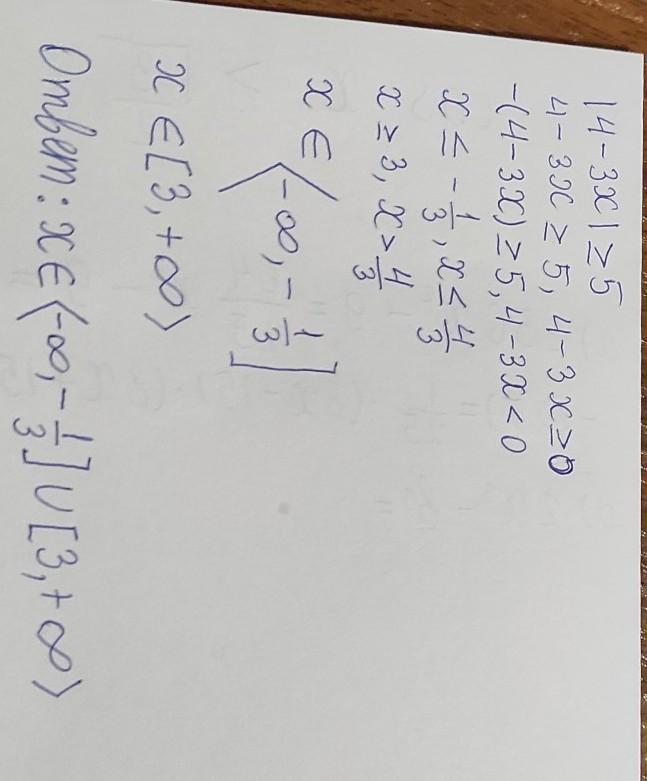 |4-3x| ≥ 5
4-3x ≥ 5, 4-3x ≥ 0
-(4-3x) ≥ 5, 4-3x < 0
x ≤ -1/3, x ≤ 4/3
x ≥ 3, x > 4/3
x ∈ ⟨-∞, -1/3]
x ∈ [3, +∞⟩
Ответ: x ∈ ⟨-∞, -1/3] ∪ [3, +∞⟩